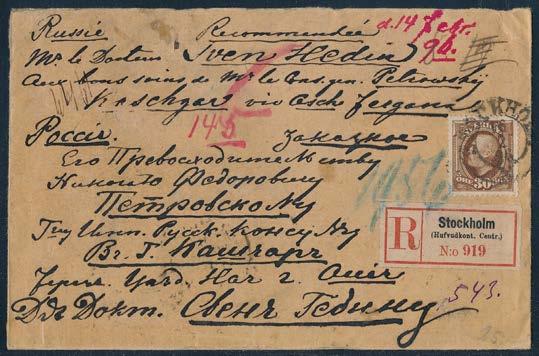 Russie Recommandée d. 14 Febr. 96.
Mr le Docteur Sven Hedin
Aux bons soins de Mr le Cons. gen. Petrowskij
Kaschgar via Osch Fergana
145
Россія. Заказное
Его Превосходительству
Николаю Федоровичу
Петровскому
Русск. Консулу
Въ г. Кашгаръ
г. Ошъ
Для Докт. Свенъ Гедину
543.
STOCKHOL
SVERIGE
30
R
Stockholm
(Hufvudkont. Centr.)
N:o 919